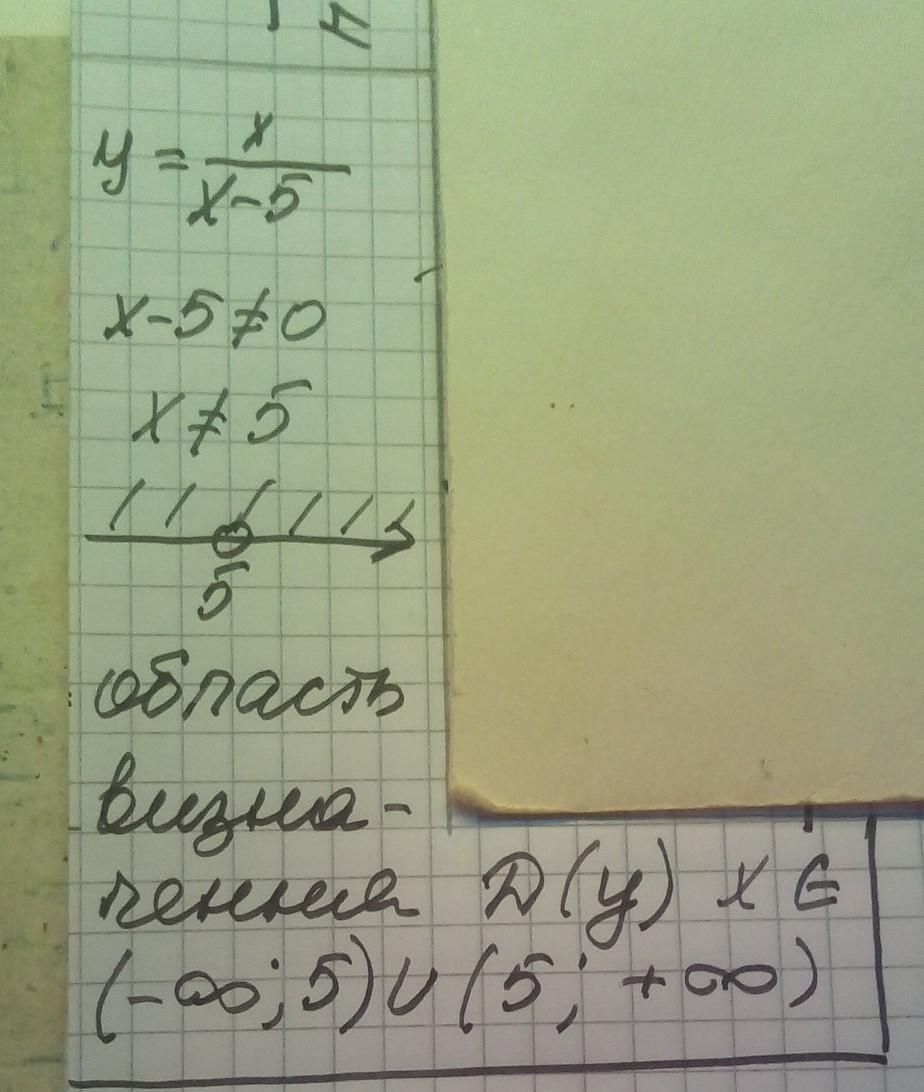 y = x/(x-5)
x-5≠0
x≠5
5
область
визна-
чення D(y) x ∈
(-∞; 5) ∪ (5; +∞)